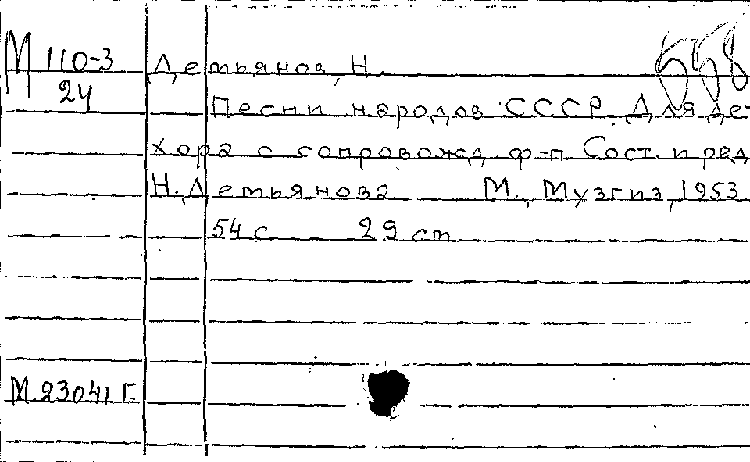 М 110-3
24
Демьянов, Н.
558
Песни народов СССР. Для де
хора с сопровожд. ф-п. Сост. и ред.
Н. Демьянова М., Музгиз, 1953.
54 с 29 см
М.23041 г.